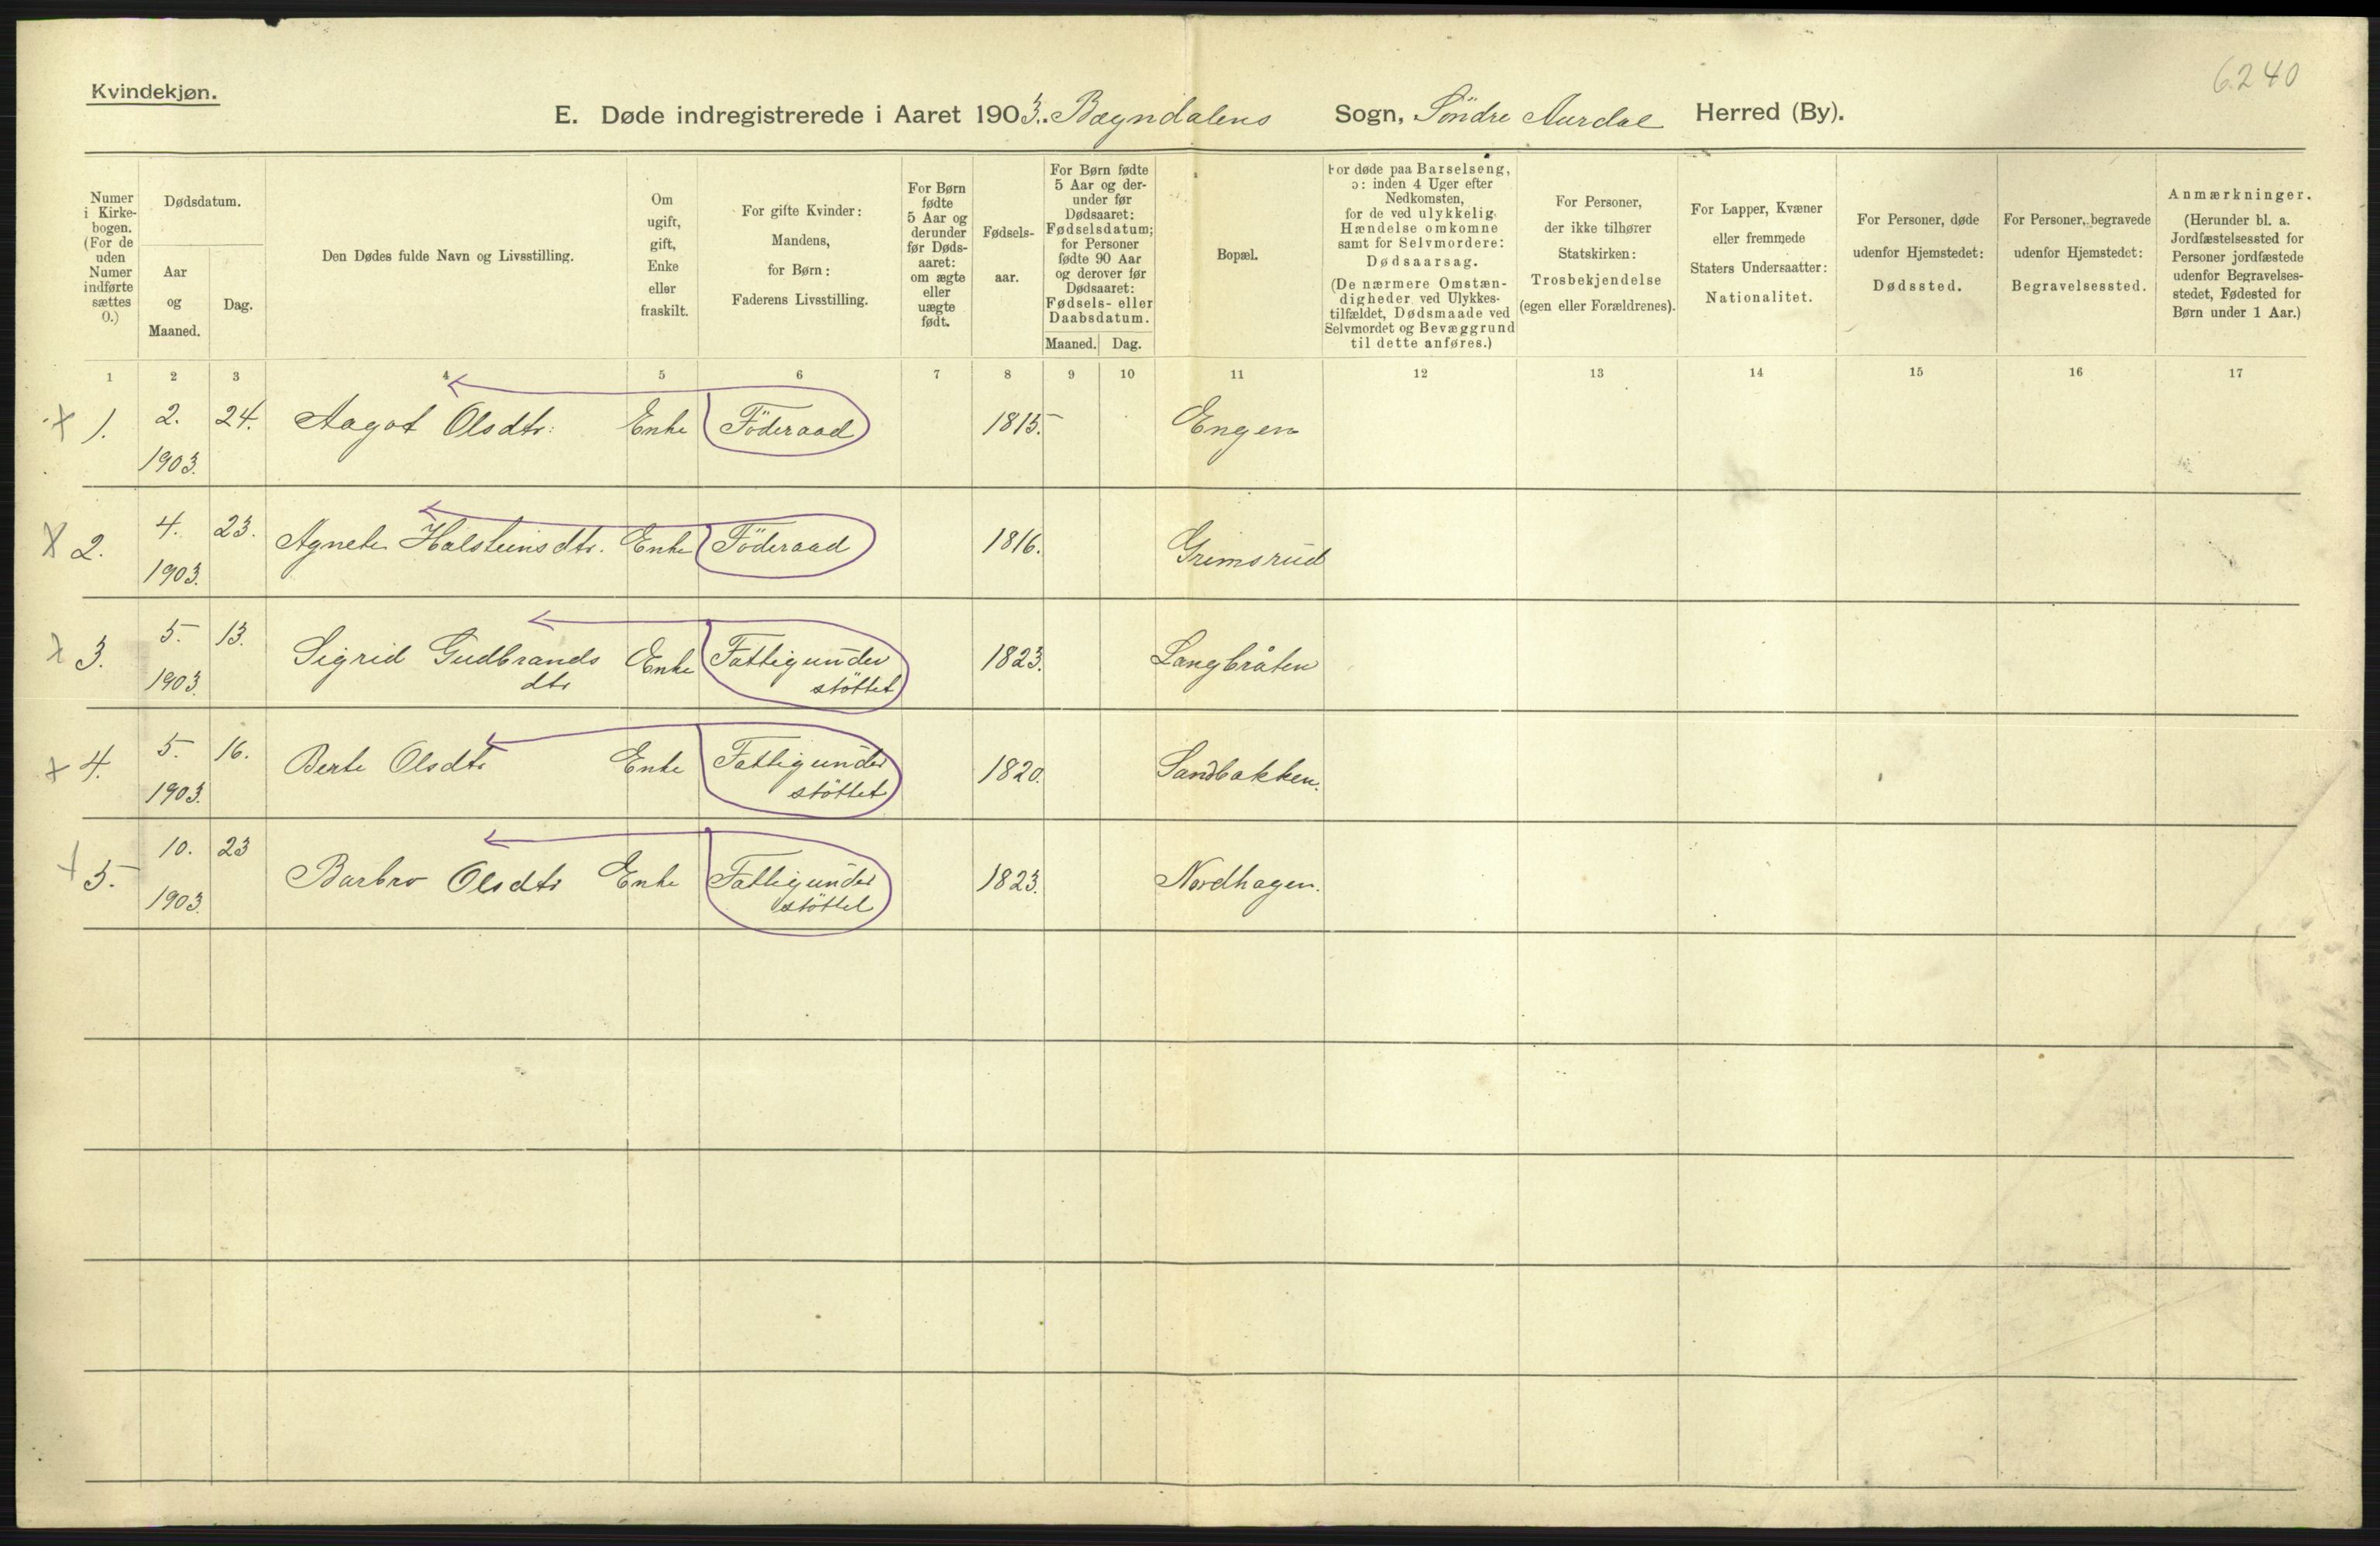 6.240
Kvindekjøn.
E. Døde indregistrerede i Aaret 1903. Bægndalens Sogn, Söndre Aurdal Herred (By).
Numer
i Kirke-
bogen.
(For de
uden
Numer
indførte
sættes
0.)
Dødsdatum.
Aar
og
Maaned.
Dag.
Den Dødes fulde Navn og Livsstilling.
Om
ugift,
gift,
Enke
eller
fraskilt.
For gifte Kvinder:
Mandens,
for Børn:
Faderens Livsstilling.
For Børn
fødte
5 Aar og
derunder
før Døds-
aaret:
om ægte
eller
uægte
født.
Fødsels-
aar.
For Børn fødte
5 Aar og der-
under før
Dødsaaret:
Fødselsdatum;
for Personer
fødte 90 Aar
og derover før
Dødsaaret:
Fødsels- eller
Daabsdatum.
Maaned. Dag.
Bopæl.
For døde paa Barselseng,
ɔ: inden 4 Uger efter
Nedkomsten,
for de ved ulykkelig
Hændelse omkomne
samt for Selvmordere:
Dødsaarsag.
(De nærmere Omstæn-
digheder ved Ulykkes-
tilfældet, Dødsmaade ved
Selvmordet og Bevæggrund
til dette anføres.)
For Personer,
der ikke tilhører
Statskirken:
Trosbekjendelse
(egen eller Forældrenes).
For Lapper, Kvæner
eller fremmede
Staters Undersaatter:
Nationalitet.
For Personer, døde
udenfor Hjemstedet:
Dødssted.
For Personer, begravede
udenfor Hjemstedet:
Begravelsessted.
Anmærkninger.
(Herunder bl. a.
Jordfæstelsessted for
Personer jordfæstede
udenfor Begravelses-
stedet, Fødested for
Børn under 1 Aar.)
1 2 3 4 5 6 7 8 9 10 11 12 13 14 15 16 17
x 1. 2. 24. Aagot Olsdtr: Enke Föderaad 1815. Engen
1903.
x 2. 4. 23. Agnete Halsteinsdtr. Enke Föderaad 1816. Grimsrud
1903.
x 3. 5. 13. Sigrid Gudbrands Enke Fattigunder 1823. Langbråten
1903. dtr støttet
x 4. 5. 16. Berte Olsdtr Enke Fattigunder 1820. Sandbakken.
1903. støttet
x 5. 10. 23 Barbro Olsdtr Enke Fattigunder 1823. Nordhagen.
1903. støttet